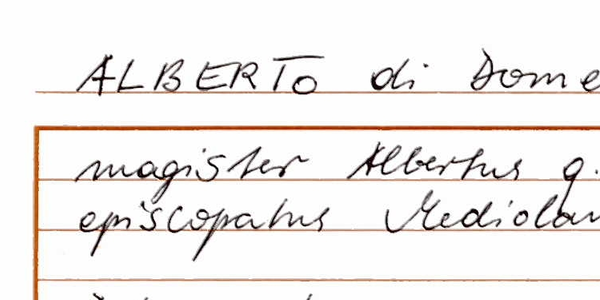 ALBERTO di Dome
magister Albertus q.
episcopatus Mediolan